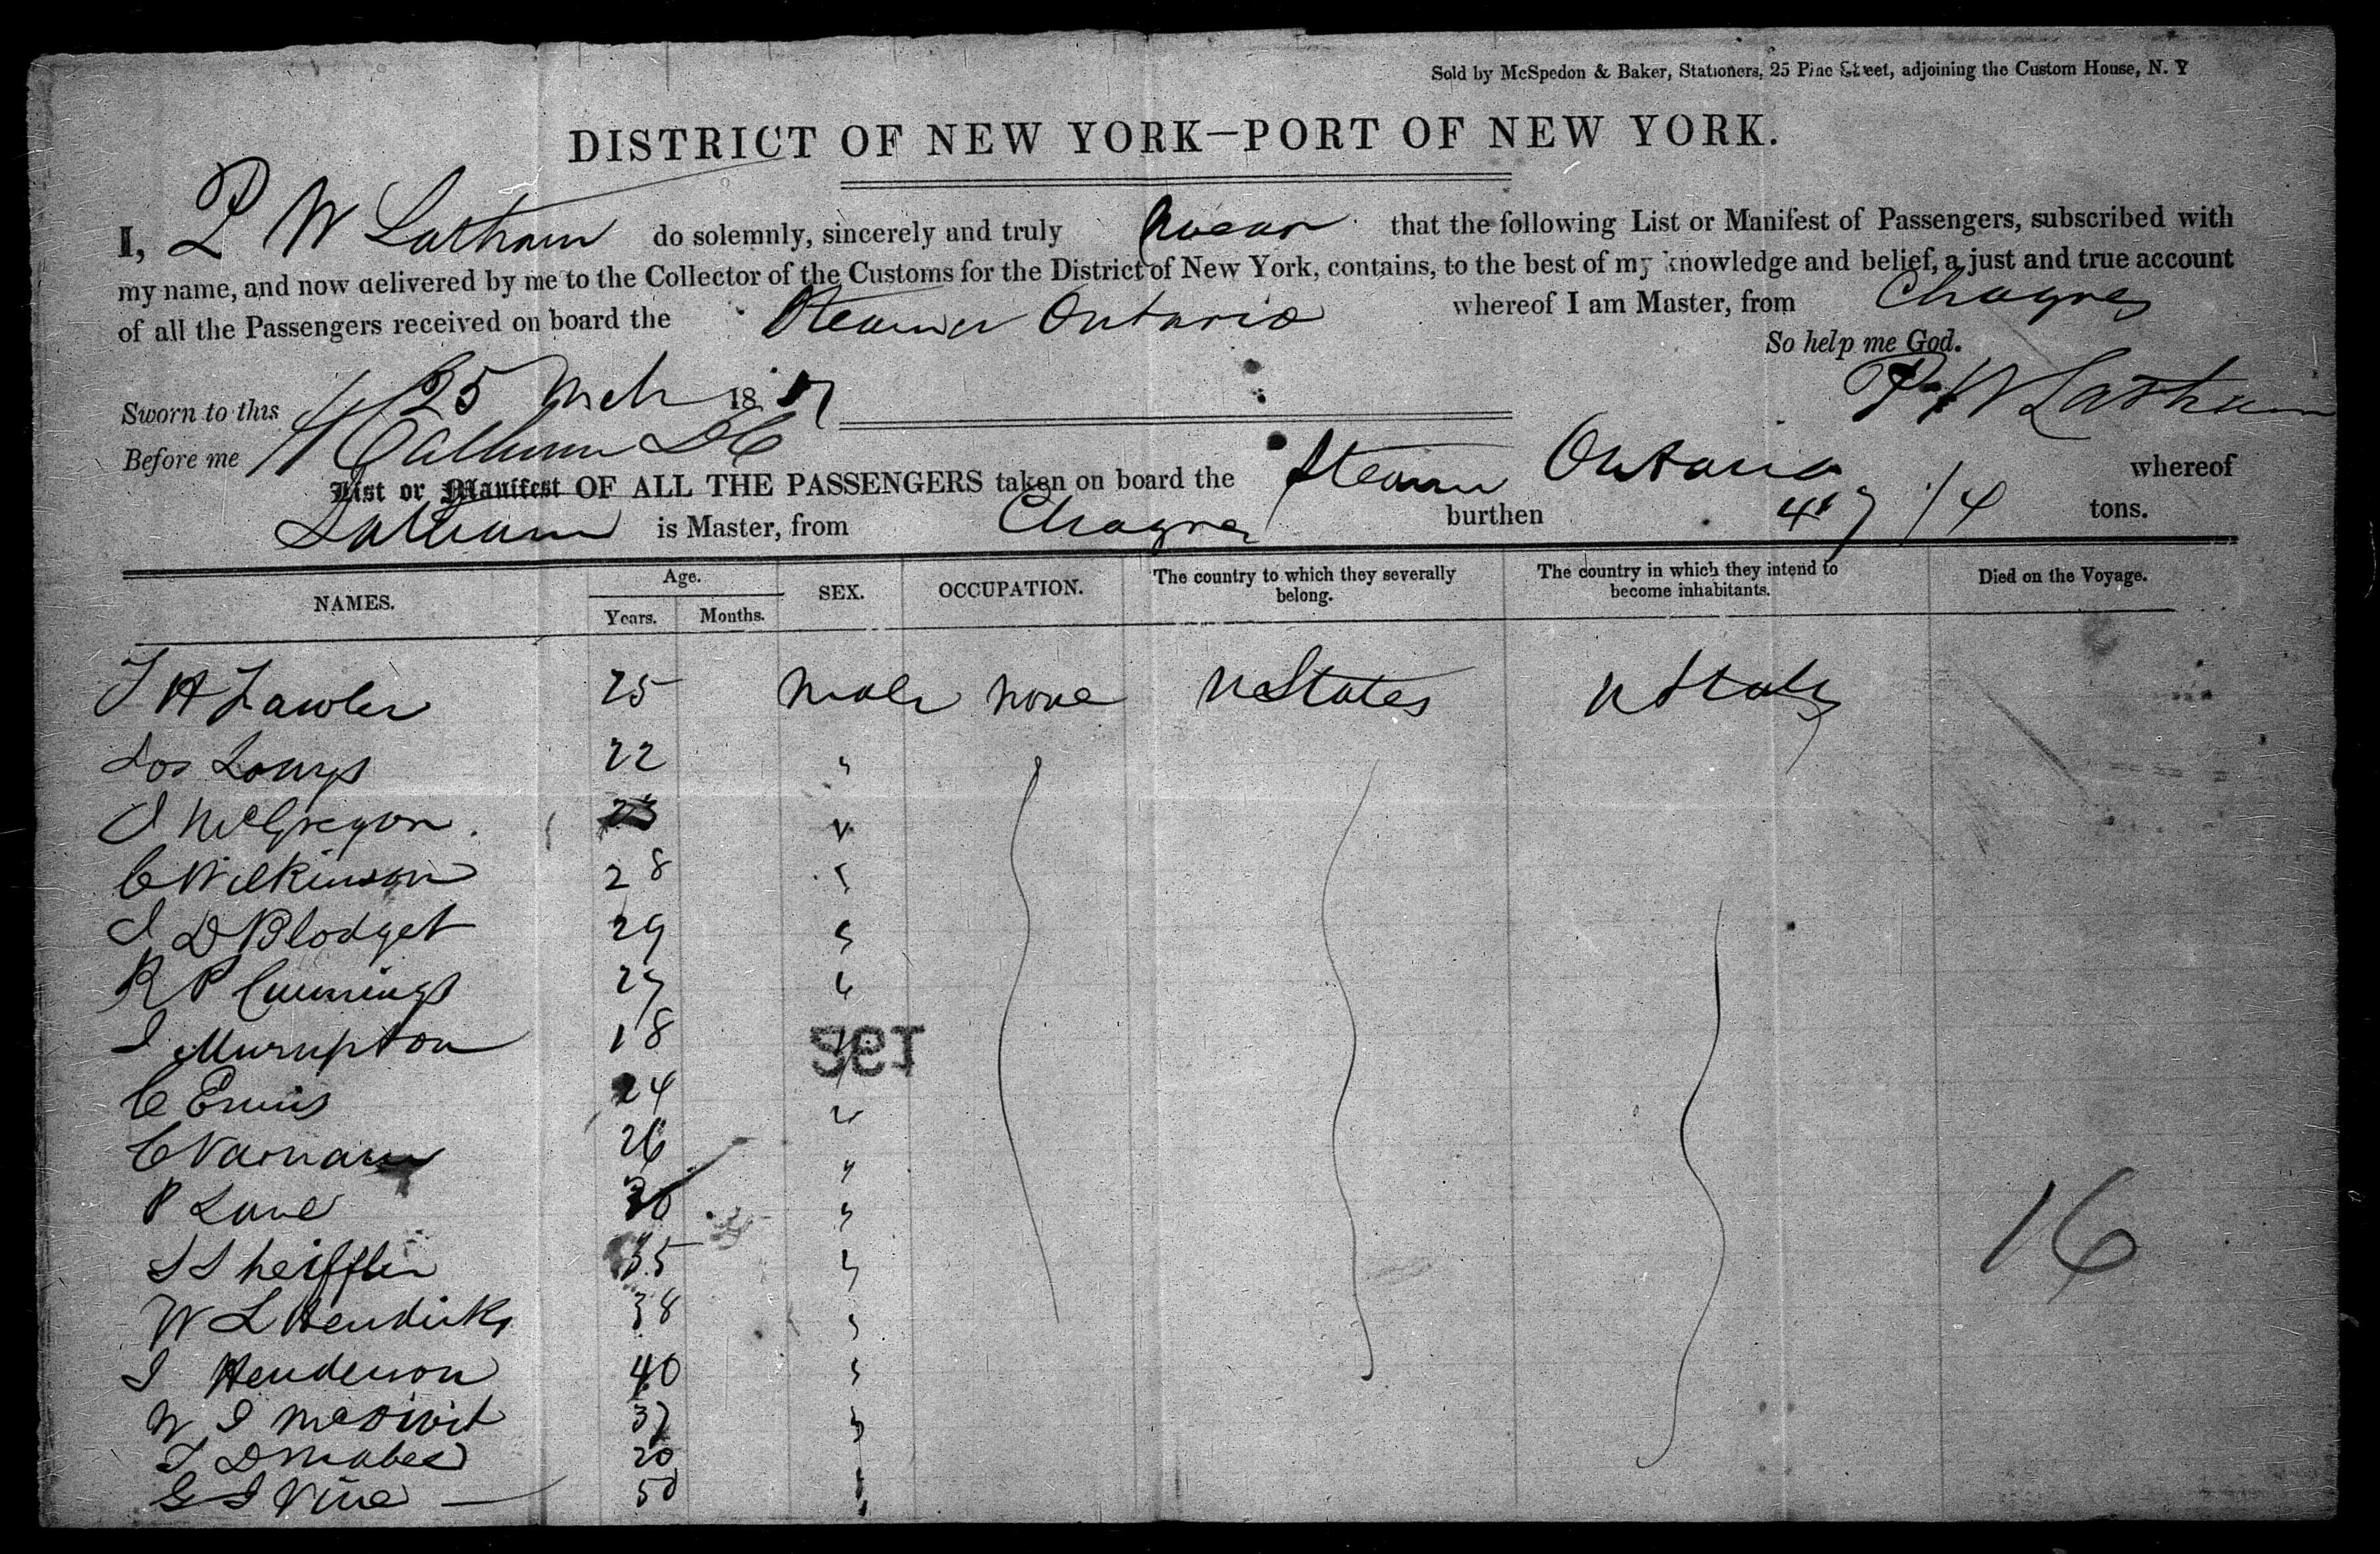 Sold by McSpedon & Baker, Stationers, 25 Pine Street, adjoining the Custom House, N. Y
DISTRICT OF NEW YORK—PORT OF NEW YORK.
I, P W Latham do solemnly, sincerely and truly swear that the following List or Manifest of Passengers, subscribed with
my name, and now delivered by me to the Collector of the Customs for the District of New York, contains, to the best of my knowledge and belief, a just and true account
of all the Passengers received on board the Steamer Ontario whereof I am Master, from Chagres
So help me God.
Sworn to this 25 Mch 18
P W Latham
Before me
List or Manifest OF ALL THE PASSENGERS taken on board the Steamer Ontario whereof
Latham is Master, from Chagres burthen tons.
NAMES. Age. SEX. OCCUPATION. The country to which they severally belong. The country in which they intend to become inhabitants. Died on the Voyage.
Years. Months.
H Lawler 25 male none U States U States
22 "
J McGregor "
C Wilkinson 28 "
J D Blodget 29 "
R P Cummings 27 "
J 18 "
C 24 "
C Varnam 26 "
P Lane 30 "
S 35 "
W L Hendricks 38 "
J Henderson 40 "
W J 37 "
20 "
G J Vine 50 "
16